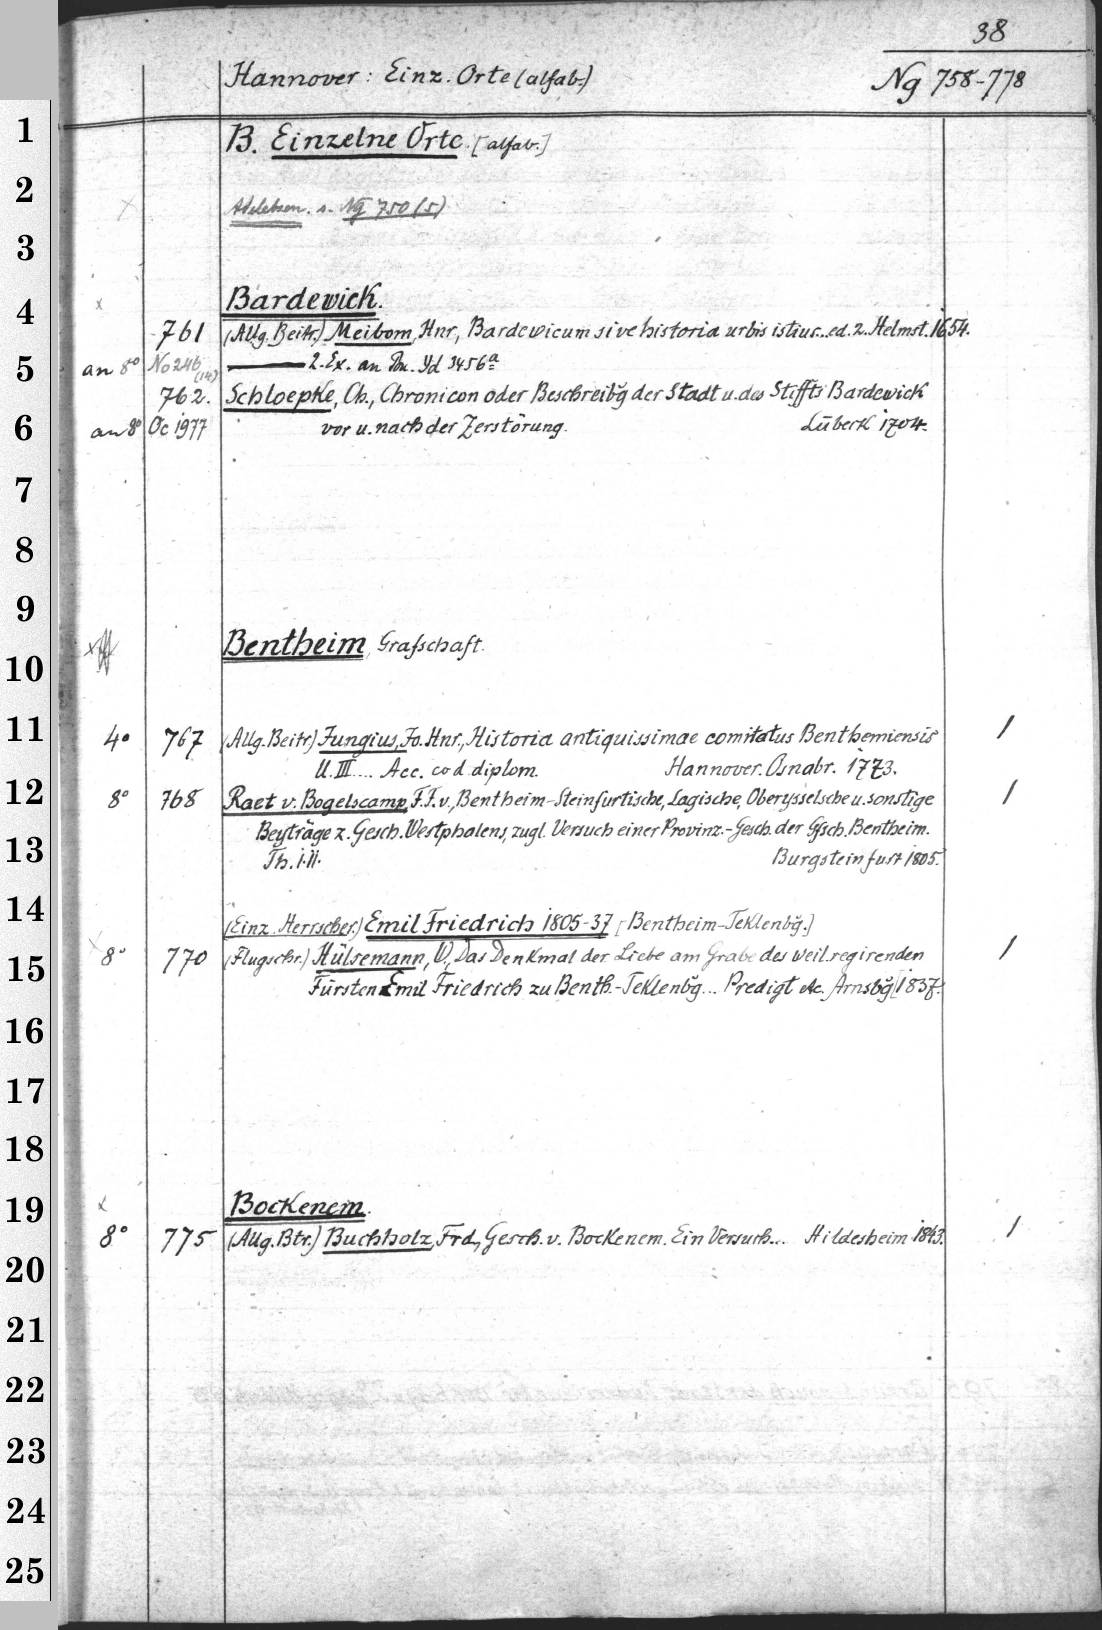 38
Hannover: Einz. Orte (alfab.)
Ng 758-778
B. Einzelne Orte. [alfab.]
Adelebsen. s. Ng 750 (5)
Bardewick.
761 (Allg. Beitr.) Meibom, Hnr., Bardewicum sive historia urbis istius... ed. 2. Helmst. 1654.
an 8° No 246 (14) ——— 2. Ex. an Yd 3456ª
762. Schloepke, Ch., Chronicon oder Beschreibg̃ der Stadt u. des Stiffts Bardewick
an 8° Oc 1977 vor u. nach der Zerstörung. Lübeck 1704.
Bentheim, Grafschaft.
4° 767 (Allg. Beitr.) Jungius, Jo. Hnr., Historia antiquissimae comitatus Benthemiensis /
ll. III.... Acc. cod. diplom. Hannover. Osnabr. 1773.
8° 768 Raet v. Bogelscamp, F. F. v., Bentheim-Steinfurtische, Lagische, Oberysselsche u. sonstige /
Beyträge z. Gesch. Westphalens, zugl. Versuch einer Provinz.-Gesch. der Gfsch. Bentheim.
Th. I. II. Burgsteinfurt 1805.
(Einz. Herrscher.) Emil Friedrich 1805-37 [Bentheim-Teklenbg̃.]
8° 770 (Flugschr.) Hülsemann, W, Das Denkmal der Liebe am Grabe des weil. regirenden /
Fürsten Emil Friedrich zu Benth.-Teklenbg̃... Predigt etc. Arnsbg̃ [1837.
Bockenem.
8° 775 (Allg. Btr.) Buchholz, Frd., Gesch. v. Bockenem. Ein Versuch... Hildesheim 1843. /
1
2
3
4
5
6
7
8
9
10
11
12
13
14
15
16
17
18
19
20
21
22
23
24
25